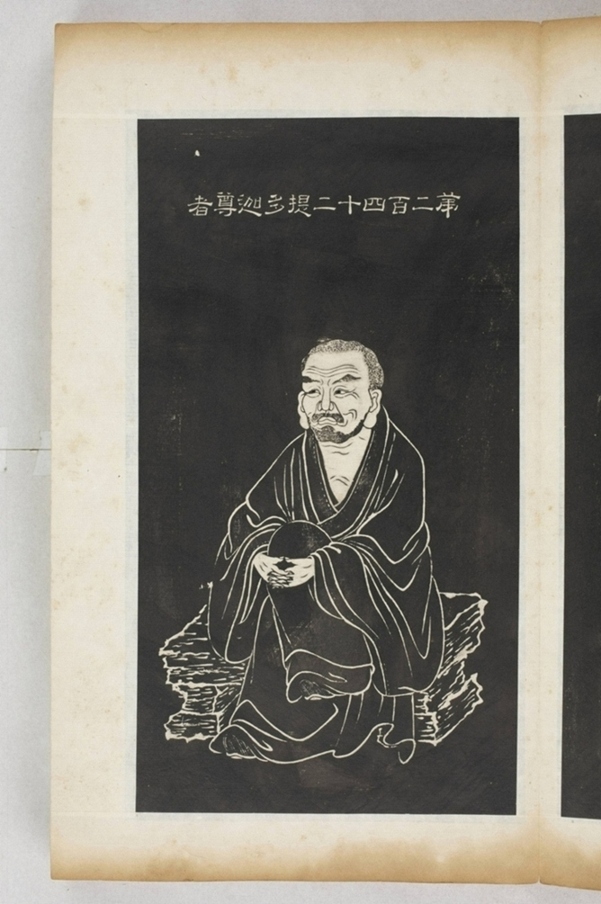 第二百四十二提多迦尊者